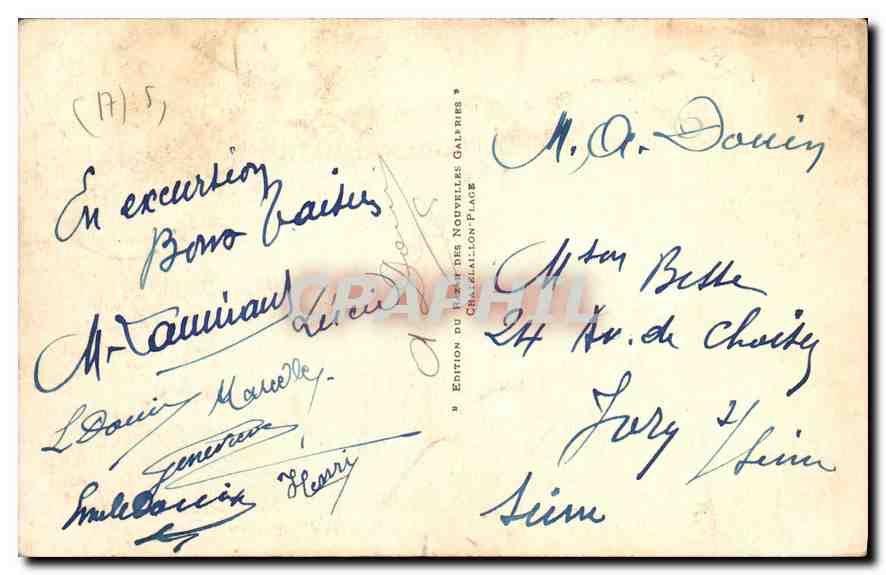 (17) 5,
En excursion
Bons baisers
M. Lucien
L Douin Marcelle
Geneviève
Emile Douin Henri
A Douin
" EDITION DU BAZAR DES NOUVELLES GALERIES "
CHATELAILLON-PLAGE
M. A. Douin
Mson Besse
24 Av. de Choisy
Ivry s/ Seine
Seine
CPAPHIL